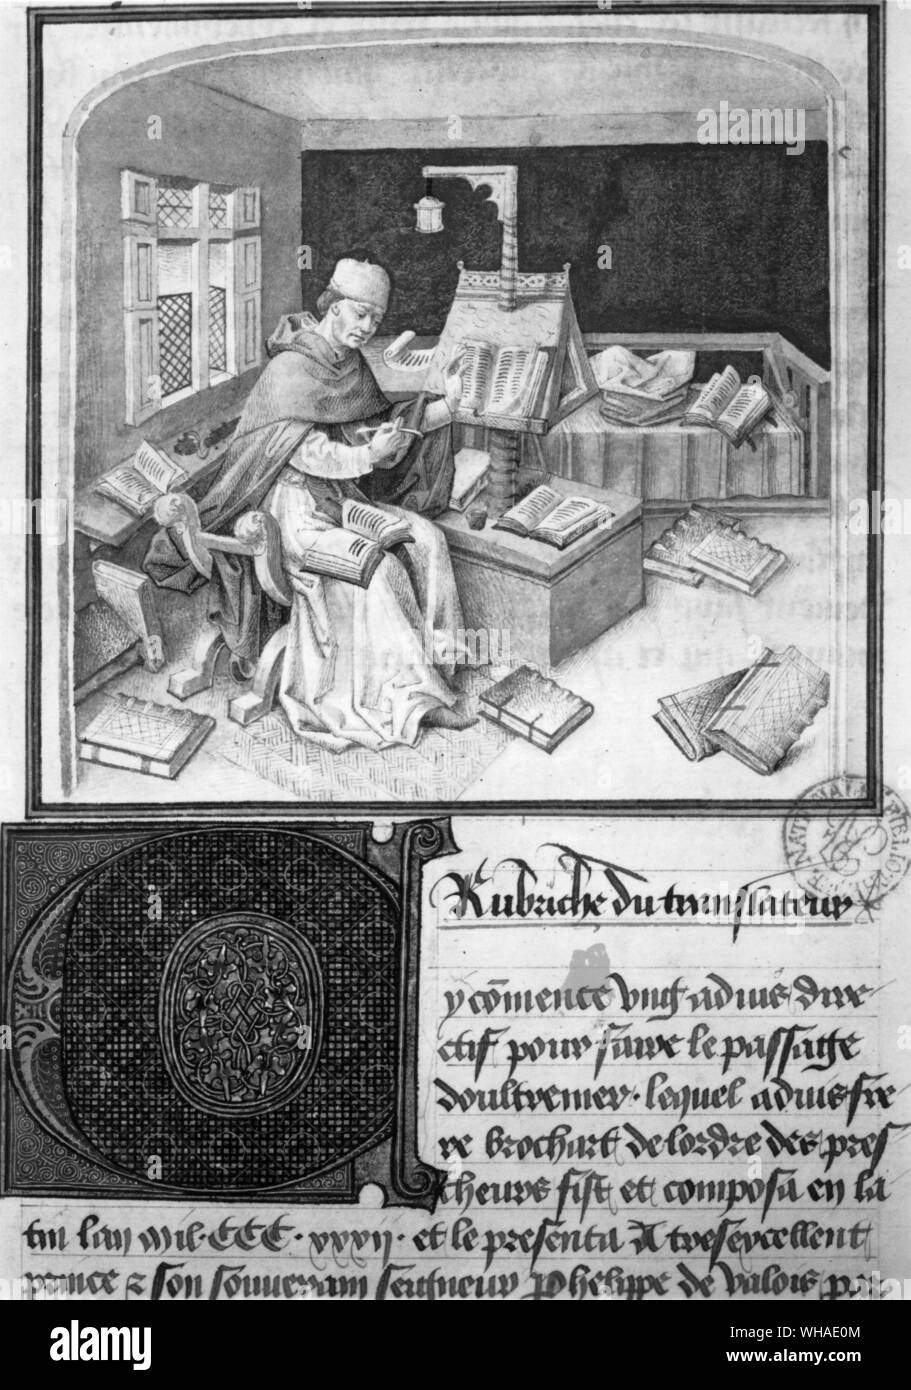 Rubriche du translateur
y cōmence vng aduis dire
ctif pour faire le passage
doultremer. lequel aduis fre
re brochart de lordre des pres
cheurs fist et composa en la
tin lan mil. CCC. xxxij. et le presenta A tresexcellent
prince & son souuerain seigneur Phelippe de valois par
alamy
Image ID: WHAE0M
www.alamy.com